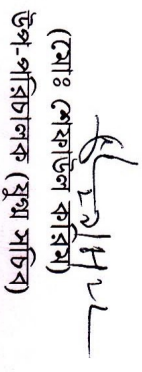 (মোঃ রেফাউল করিম)
উপ-পরিচালক (যুগ্ম সচিব)